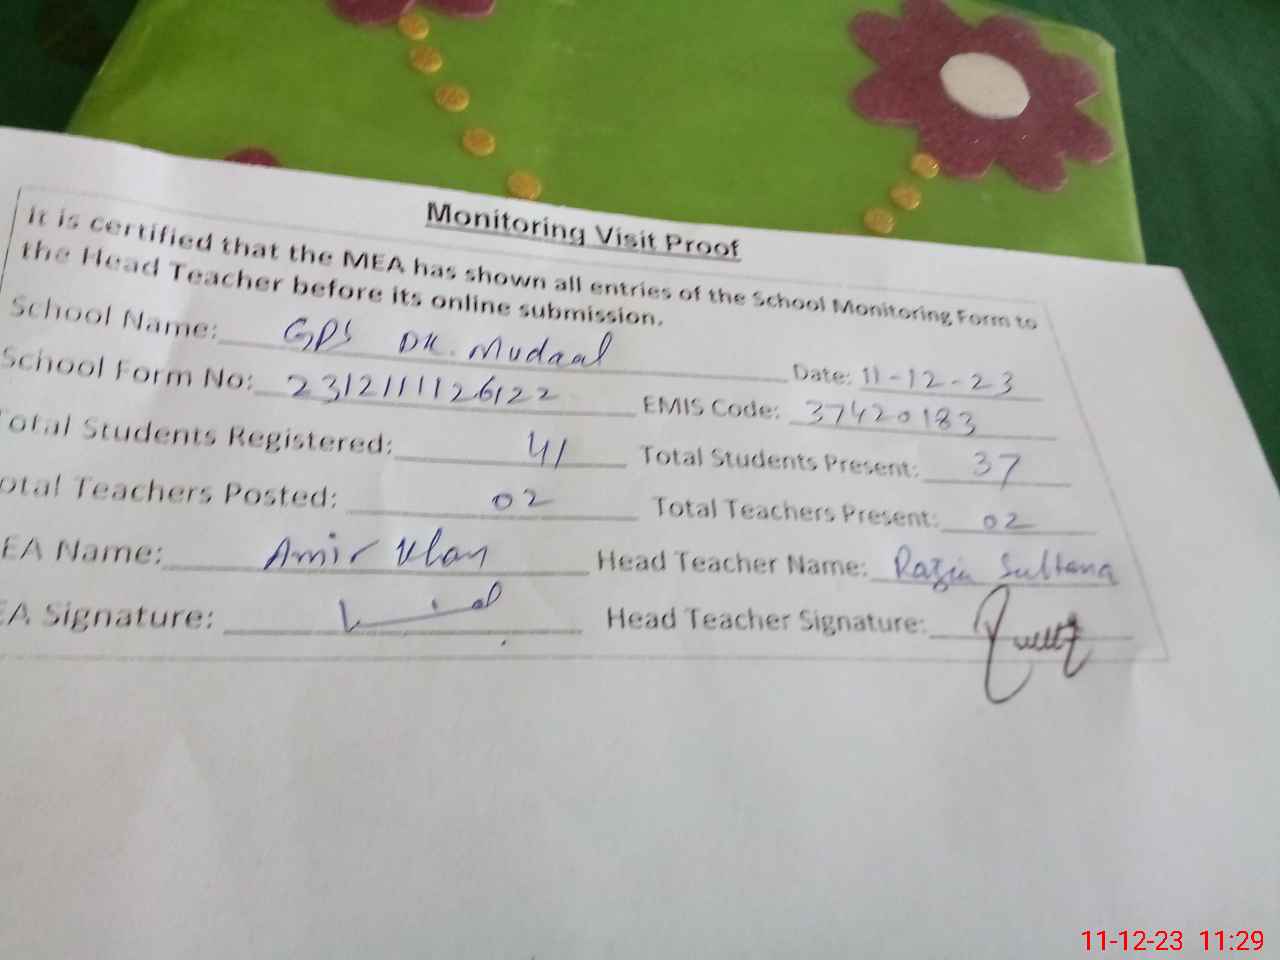 Monitoring Visit Proof
it is certified that the MEA has shown all entries of the School Monitoring Form to
the Head Teacher before its online submission.
School Name: GPS DK. Mudaal
Date: 11-12-23
School Form No: 2312111126122
EMIS Code: 37420183
otal Students Registered: 41
Total Students Present: 37
otal Teachers Posted: 02
Total Teachers Present: 02
EA Name: Amir Khan
Head Teacher Name: Razia Sultana
EA Signature:
Head Teacher Signature:
11-12-23 11:29